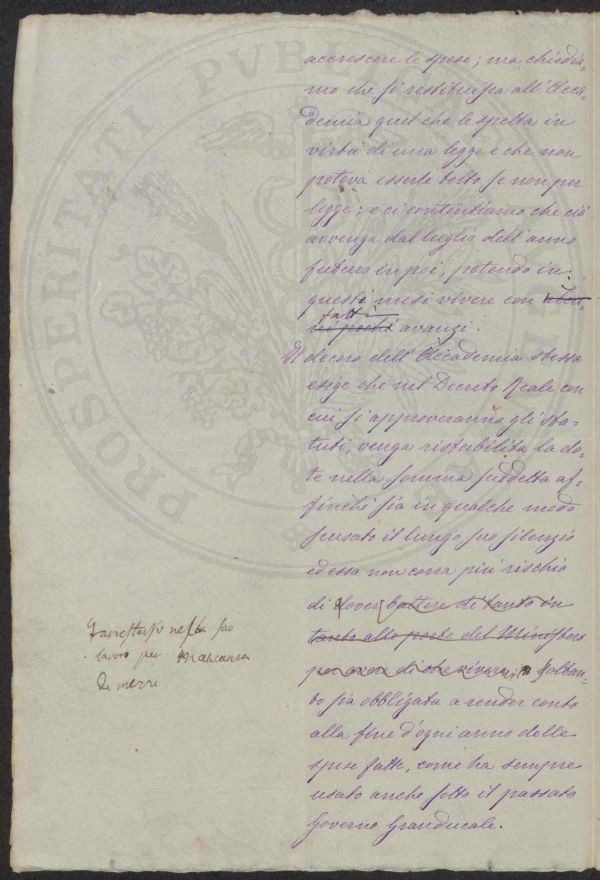 accrescere le spese; ma chiedia-
mo che si restituisca all'Acca-
demia quel che le spetta in
virtù di una legge e che non
poteva esserle tolto se non per
legge; e ci contentiamo che ciò
avvenga dal luglio dell'anno
futuro in poi, potendo in
questi mesi vivere con i
fatti
avanzi.
Il decoro dell'Accademia stessa
esige che nel Decreto Reale con
cui si approveranno gli Sta-
tuti, venga ristabilita la do-
te nella somma suddetta af-
finchè sia in qualche modo
scusato il lungo suo silenzio
ed essa non corra più rischio
di dover battere di tanto in
tanto alle porte del Ministero
per aver di che vivere. Soltan-
to sia obbligata a render conto
alla fine d'ogni anno delle
spese fatte, come ha sempre
usato anche sotto il passato
Governo Granducale.
d'arrestarsi nel suo
lavoro per mancanza
di mezzi
PROSPERITATI PVBLICAE